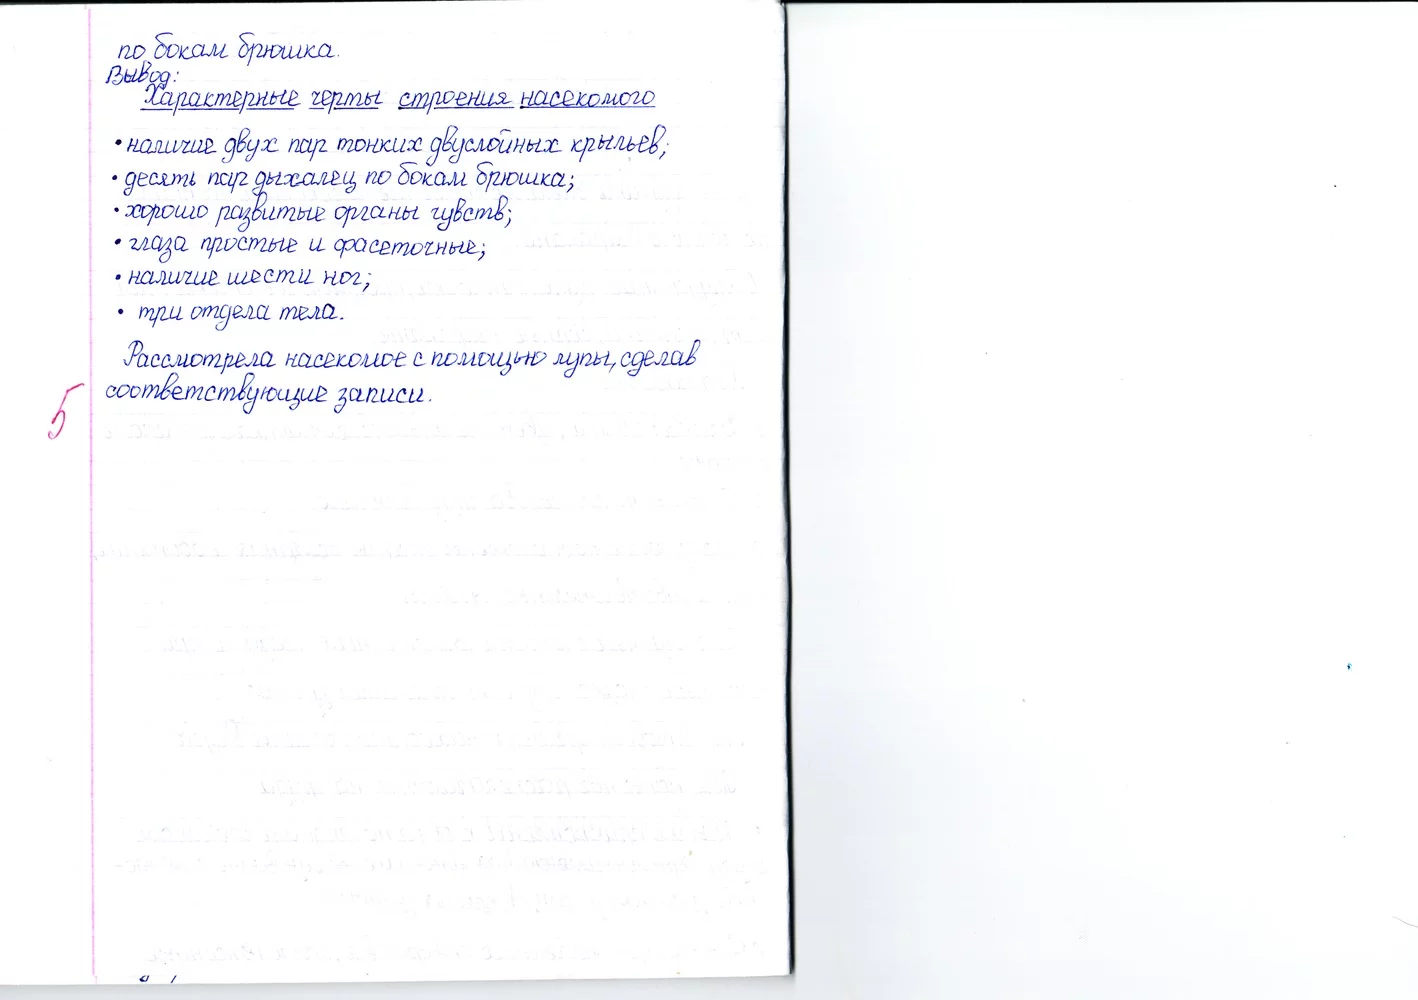 по бокам брюшка.
Вывод:
Характерные черты строения насекомого
• наличие двух пар тонких двуслойных крыльев;
• десять пар дыхалец по бокам брюшка;
• хорошо развитые органы чувств;
• глаза простые и фасеточные;
• наличие шести ног;
• три отдела тела.
Рассмотрела насекомое с помощью лупы, сделав
соответствующие записи.
5